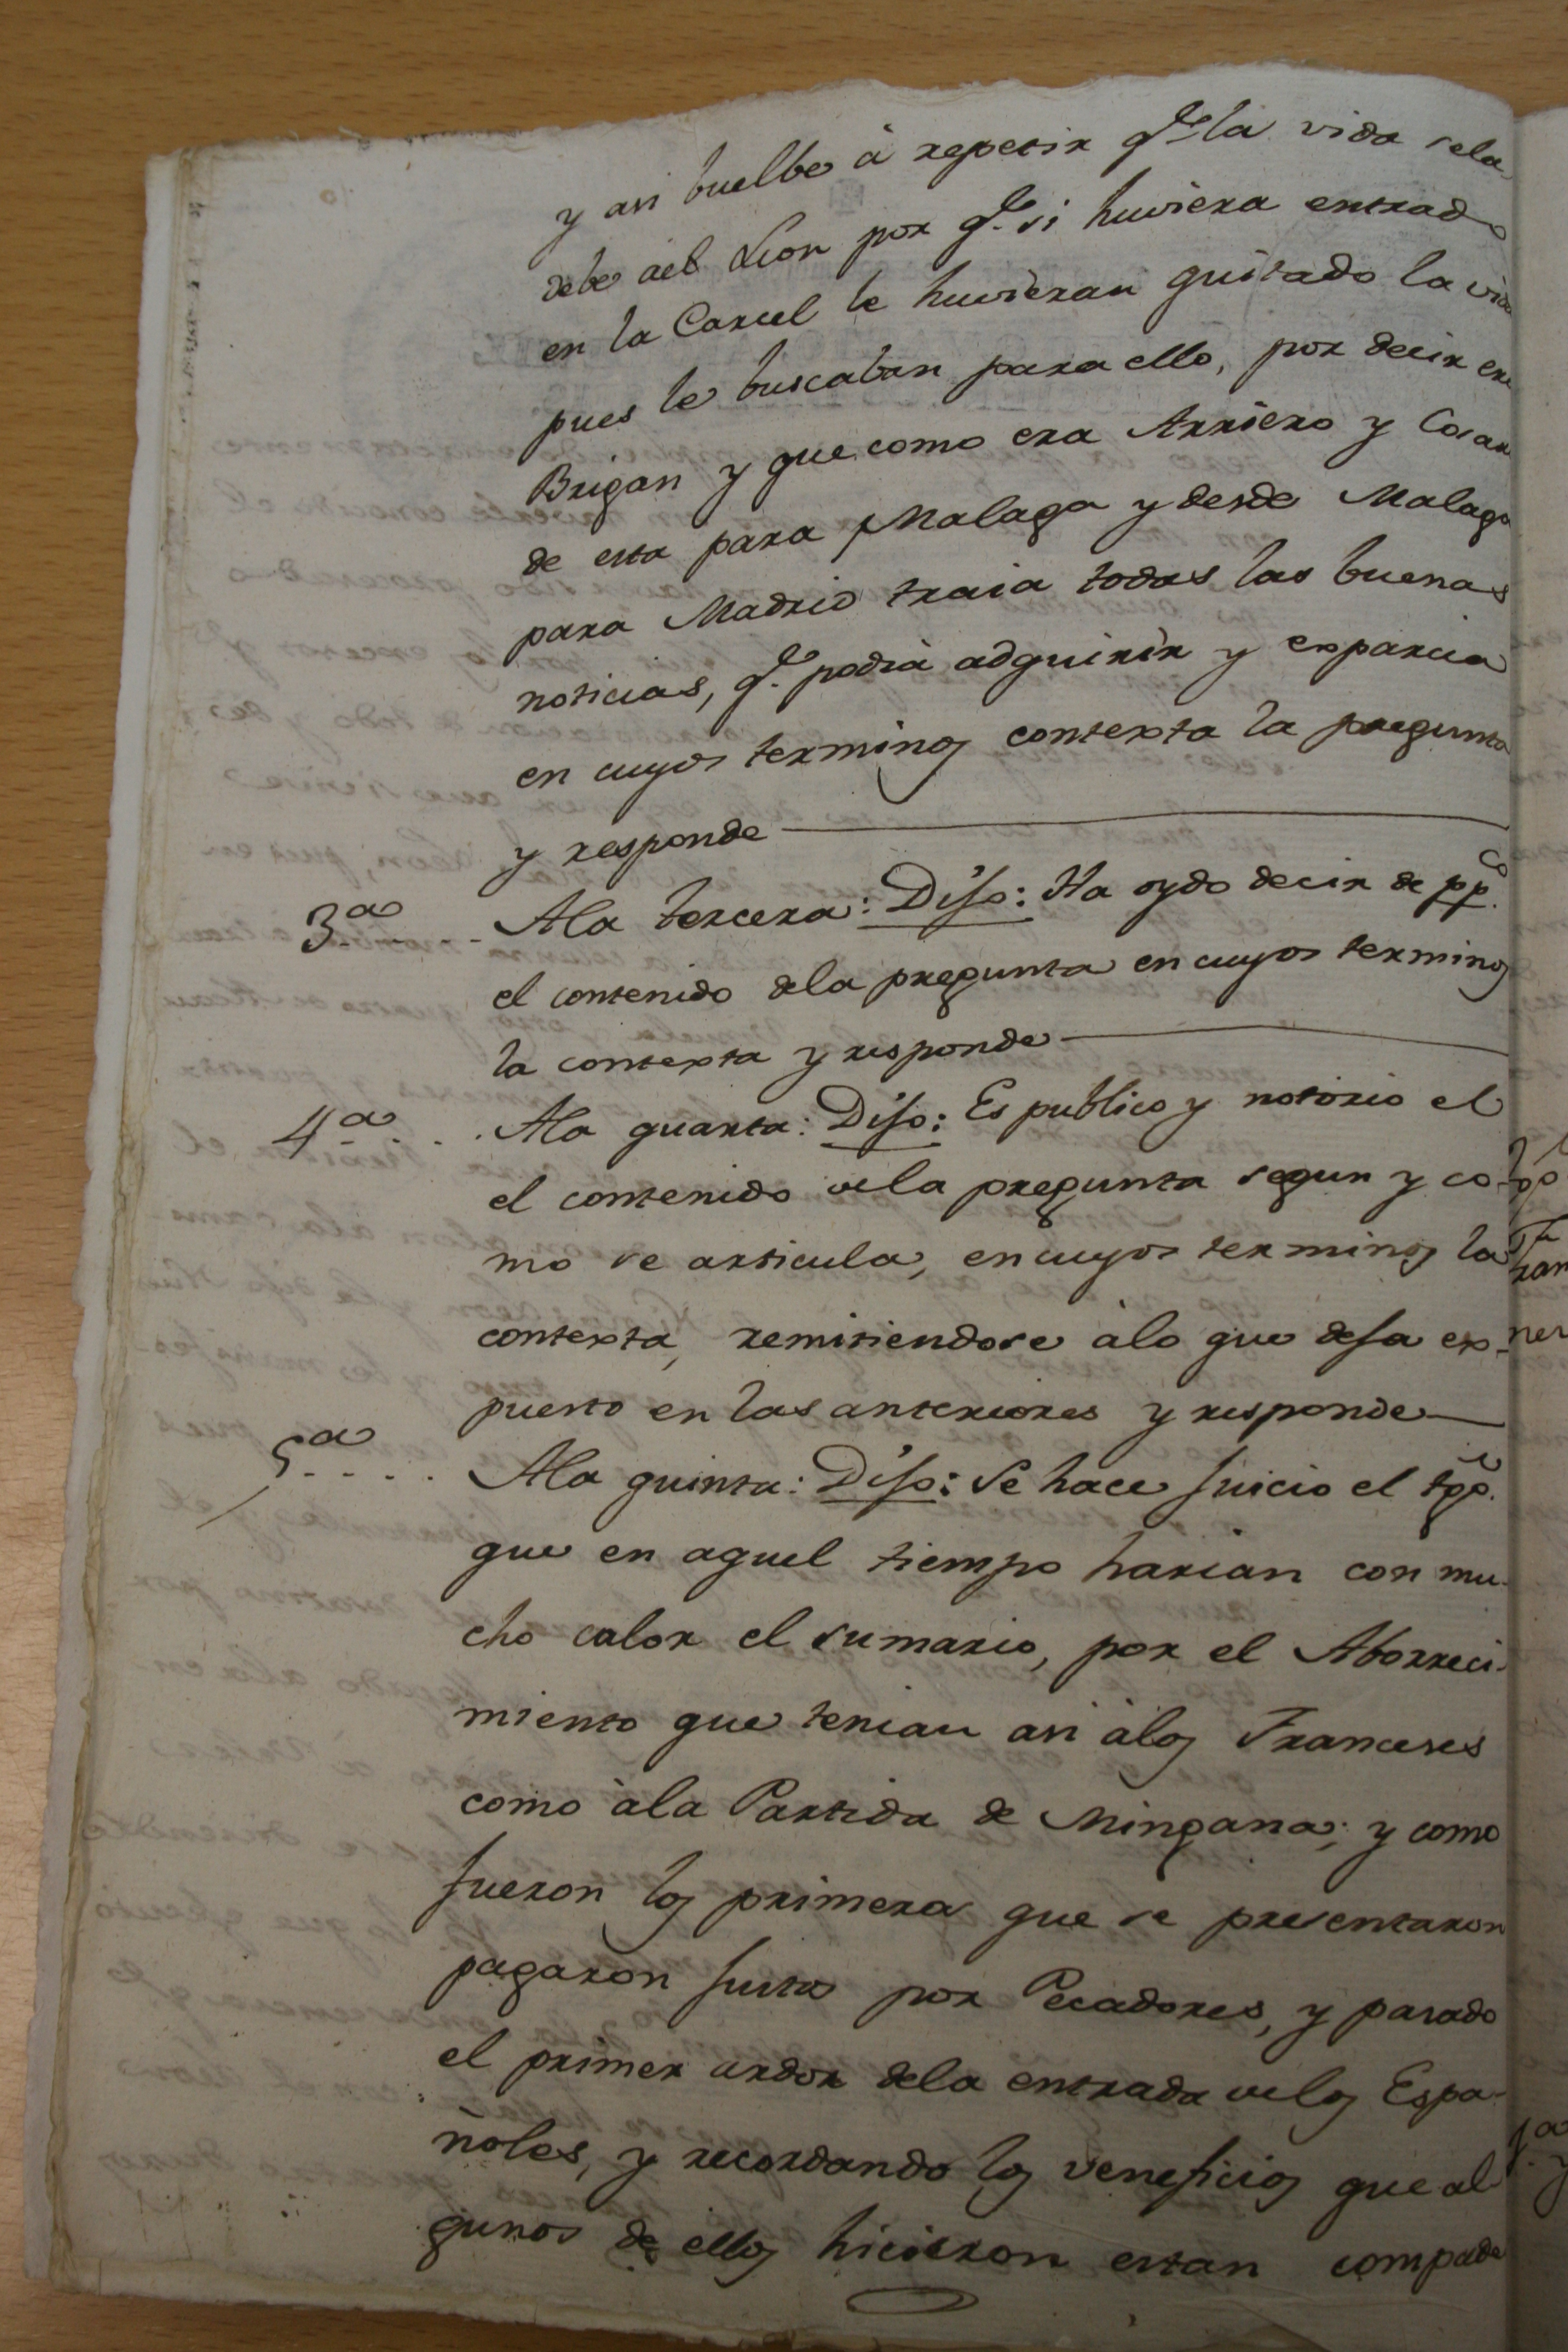 y asi buelbe à repetir q.e la vida sela
debe àel Leon por q.e si huviera entrado
en la Carcel le huvieran quitado la vida
pues le buscaban para ello, por decir era
Brigan y que como era Arriero y Cosar
de esta para Malaga y desde Malaga
para Madrid traia todas las buenas
noticias, q.e podia adquirir y exparcia
en cuyos terminos contexta la pregunta
y responde
3.a Ala tercera: Dijo: Ha oydo decir de pp.co
el contenido dela pregunta en cuyos terminos
la contexta y responde
4.a Ala quarta: Dijo: Es publico y notorio el
el contenido dela pregunta segun y co-
mo se articula, en cuyos terminos la
contexta, remitiendose àlo que deja ex-
puesto en las anteriores y responde
5.a Ala quinta: Dijo: Se hace juicio el tgo.
que en aquel tiempo harian con mu-
cho calor el sumario, por el Aborreci-
miento que tenian asi àlos Franceses
como àla Partida de Mingana; y como
fueron los primeros que se presentaron
pagaron justos por Pecadores, y pasado
el primer ardor dela entrada delos Espa-
ñoles, y recordando los veneficios que al
gunos de ellos hicieron estan compade